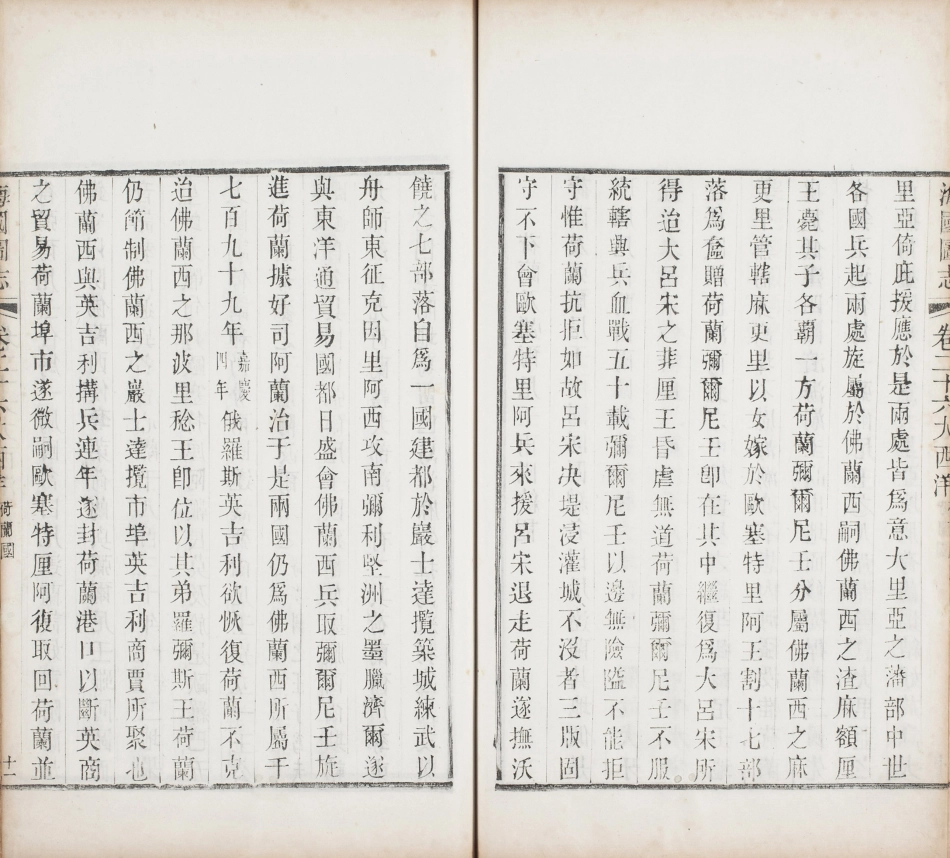 海國圖志 卷二十六大西洋
里亞倚庇援應於是兩處皆爲意大里亞之藩部中世
各國兵起兩處旋屬於佛蘭西嗣佛蘭西之渣麻額厘
王薨其子各霸一方荷蘭彌爾尼壬分屬佛蘭西之麻
更里管轄麻更里以女嫁於歐塞特里阿王割十七部
落爲奩贈荷蘭彌爾尼壬卽在其中繼復爲大呂宋所
得迨大呂宋之菲厘王昏虐無道荷蘭彌爾尼壬不服
統轄興兵血戰五十載彌爾尼壬以邊無險隘不能拒
守惟荷蘭抗拒如故呂宋決堤浸灌城不沒者三版固
守不下會歐塞特里阿兵來援呂宋退走荷蘭遂撫沃
饒之七部落自爲一國建都於巖士達攬築城練武以
舟師東征克因里阿西攻南彌利堅洲之墨臘濟爾遂
與東洋通貿易國都日盛會佛蘭西兵取彌爾尼壬旋
進荷蘭據好司阿蘭治于是兩國仍爲佛蘭西所屬千
七百九十九年嘉慶四年俄羅斯英吉利欲恢復荷蘭不克
迨佛蘭西之那波里稔王卽位以其弟羅彌斯王荷蘭
仍節制佛蘭西之巖士達攬市埠英吉利商賈所聚也
佛蘭西與英吉利搆兵連年遂封荷蘭港口以斷英商
之貿易荷蘭埠市遂微嗣歐塞特厘阿復取回荷蘭並
海國圖志 卷 荷蘭國 十一